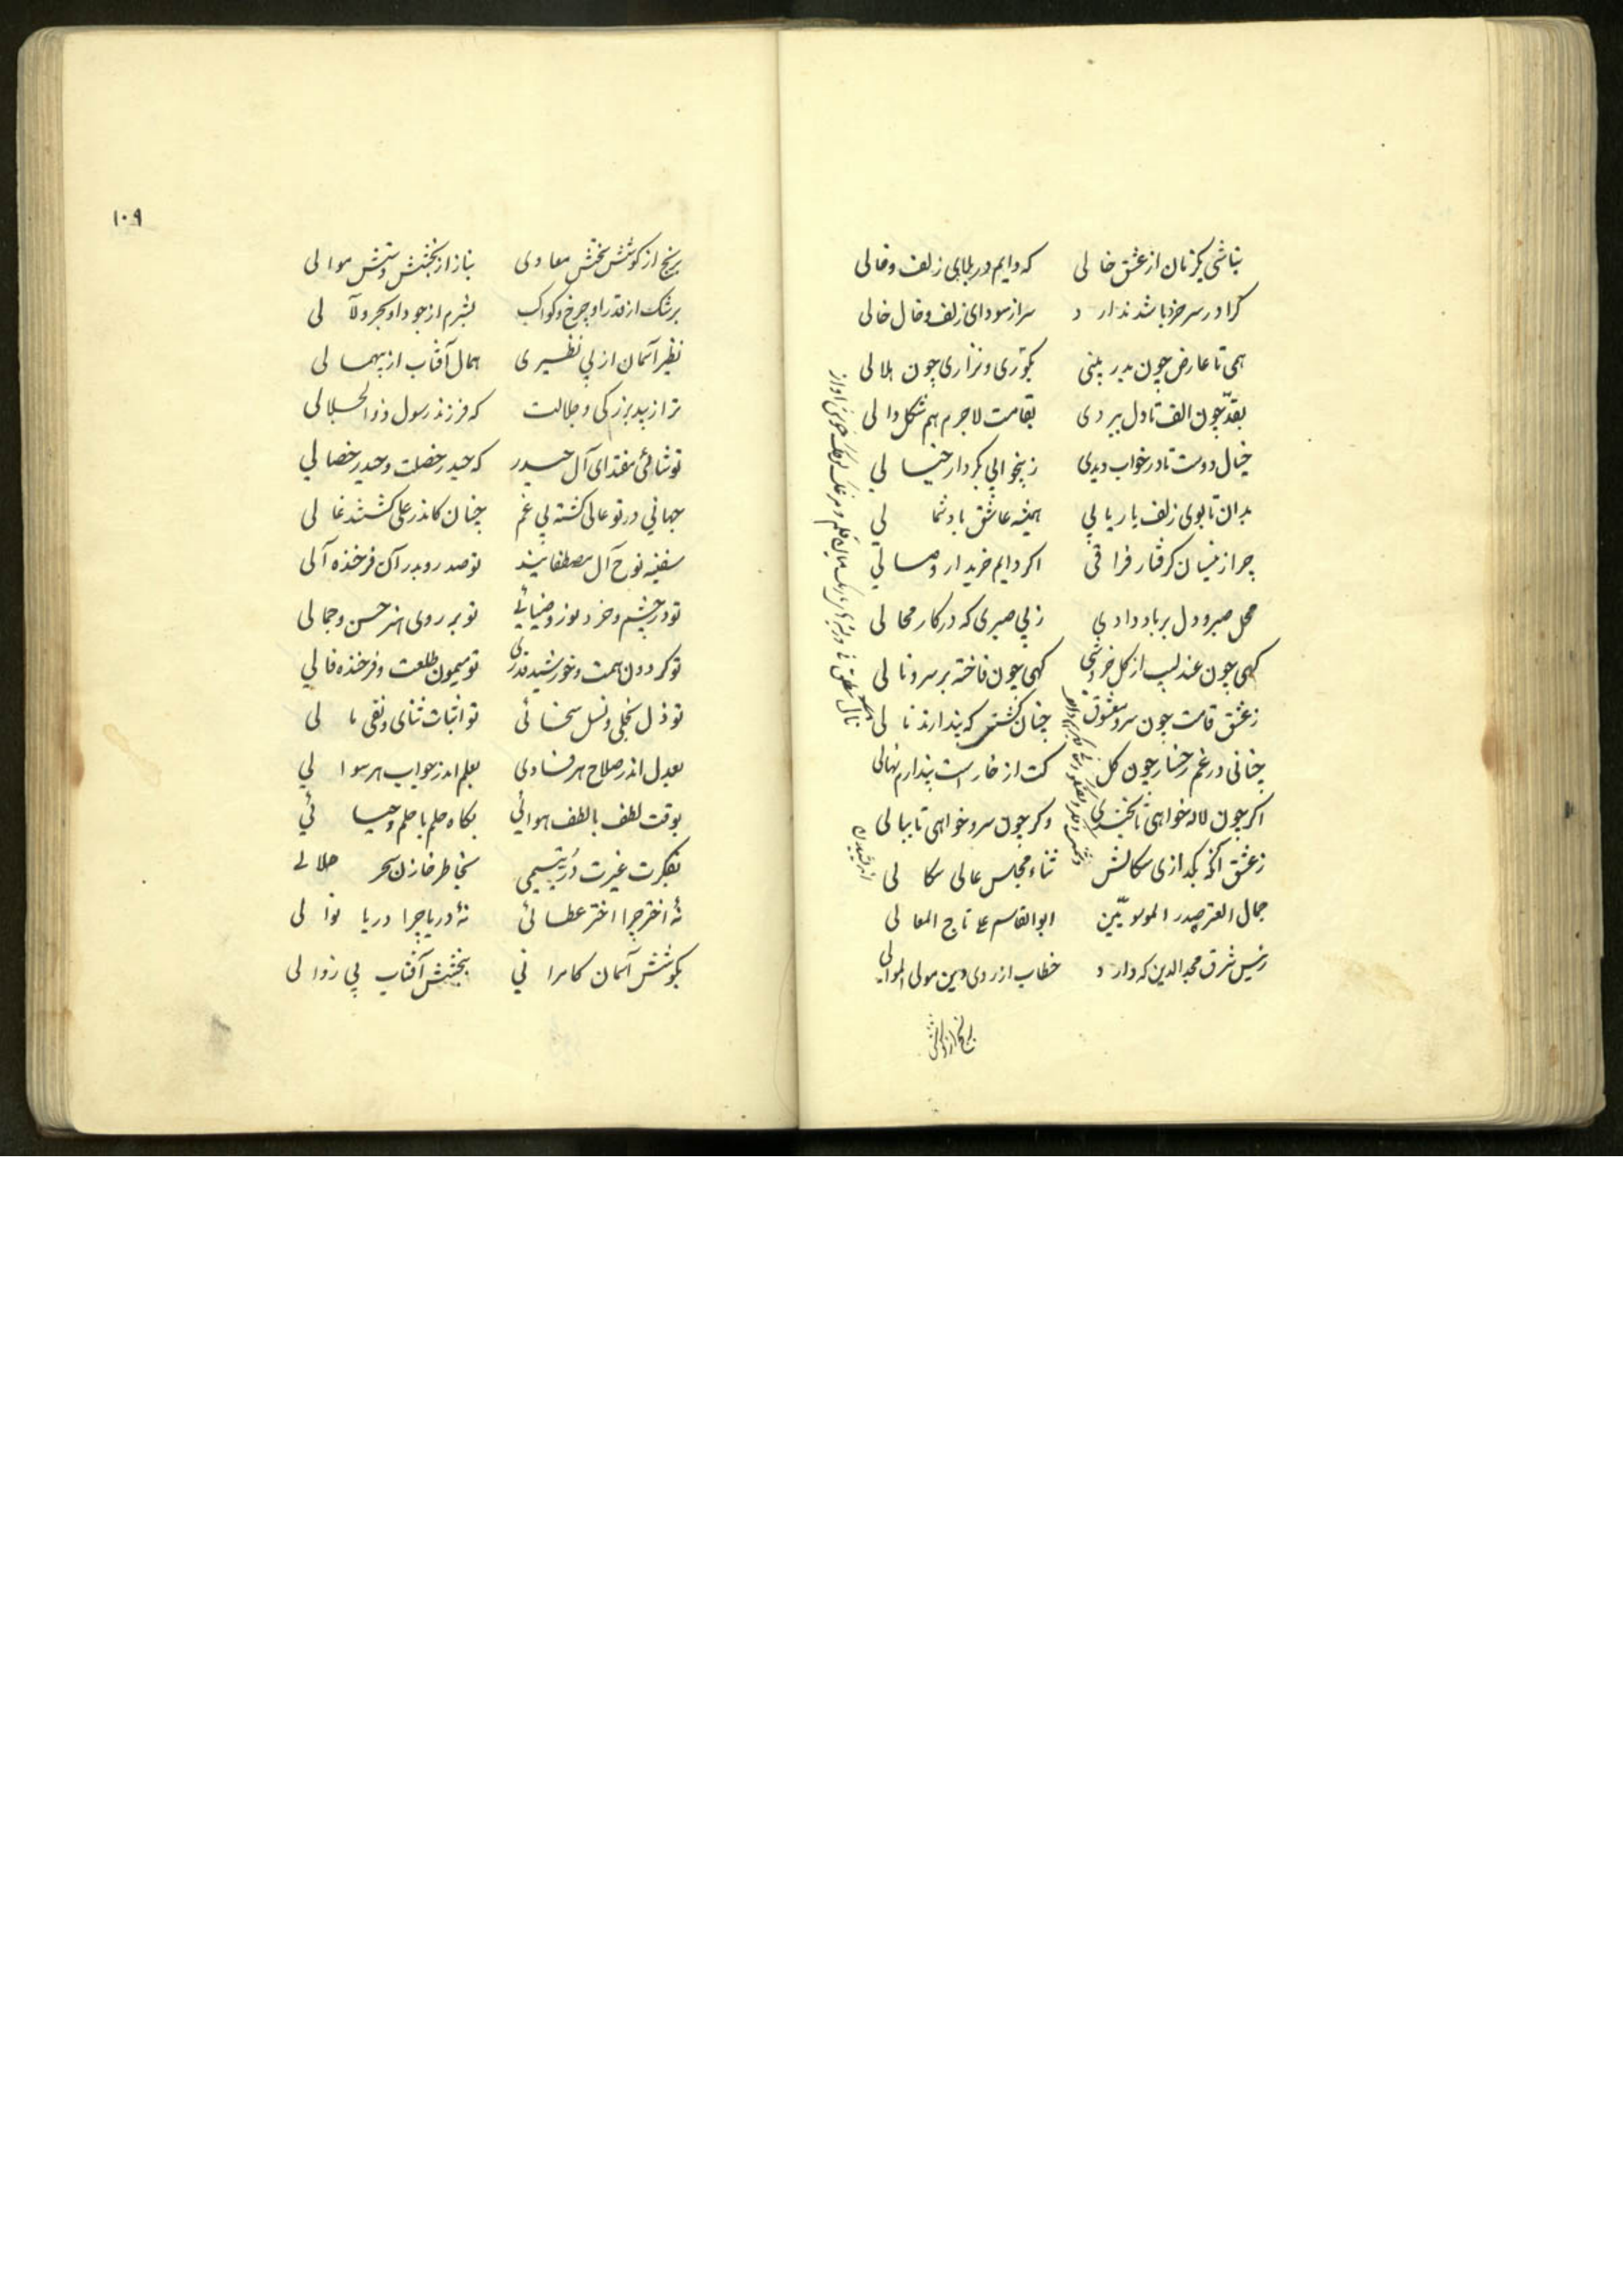 نباشی یکزمان از عشق خالی که دایم در بلای زلف و خالی
کرا در سر خرد باشد ندارد سر از سودای زلف و خال خالی
همی تا عارض چون بدر بینی بکوژی و نزاری چون هلالی
بقد چون الف تا دل ببردی بقامت لاجرم هم شکل دالی
خیال دوست تا در خواب دیدی ز بیخوابی بکردار خیالی
بدان تا بوی زلف یار یابی همیشه عاشق باد شمالی
چرا زینسان کرفتار فراقی اکر دایم خریدار وصالی
محل صبر و دل بر باد دادی ز بی صبری که در کار محالی
کهی چون عندلیب از کل خروشی کهی چون فاخته بر سرو نالی
ز عشق قامت چون سرو معشوق چنان کشتی که پندارند نالی
چنانی در غم رخسار چون کل کت از خار است پندارم نهالی
اکر چون لاله خواهی تا بخندی وکر چون سرو خواهی تا ببالی
ز عشق آنکه بکدازی سکالش ثناء مجلس عالی سکالی
جمال العتره صدر الموسویین ابوالقاسم علی تاج المعالی
رئیس شرق مجد الدین که دارد خطاب از روی دین مولی الموالی
برنج از کوشش
۱۰۹
برنج از کوشش بخشش معادی بناز از بخشش و بینش موالی
برشک از قدر او چرخ و کواکب بشرم از جود او بحر و لآلی
نظیر آسمان از بی نظیری همال آفتاب از بیهمالی
ترا زیبد بزرکی و جلالت که فرزند رسول ذوالجلالی
تو شائی مقتدای آل حیدر که حیدر خصلت و حیدر خصالی
جهانی در تو عالی کشته بی غم چنان کاندر علی کشتند غالی
سفینه نوح آل مصطفایند تو صدر و بدر آن فرخنده آلی
تو در چشم و خرد نور و ضیائی تو بر روی هنر حسن و جمالی
تو کردون همت و خورشید قدری تو میمون طلعت و فرخنده فالی
تو ذل بخلی و نسل سخائی تو اثبات ثنای و نفی مالی
بعدل اندر صلاح هر فسادی بعلم اندر جواب هر سوالی
بوقت لطف با لطف هوائی بکاه حلم با حلم و حیائی
بفکرت غیرت در یتیمی بخاطر خازن سحر حلالی
نهٔ اختر چرا اختر عطائی نهٔ دریا چرا دریا نوالی
بکوشش آسمان کامرانی ببخشش آفتاب بی زوالی